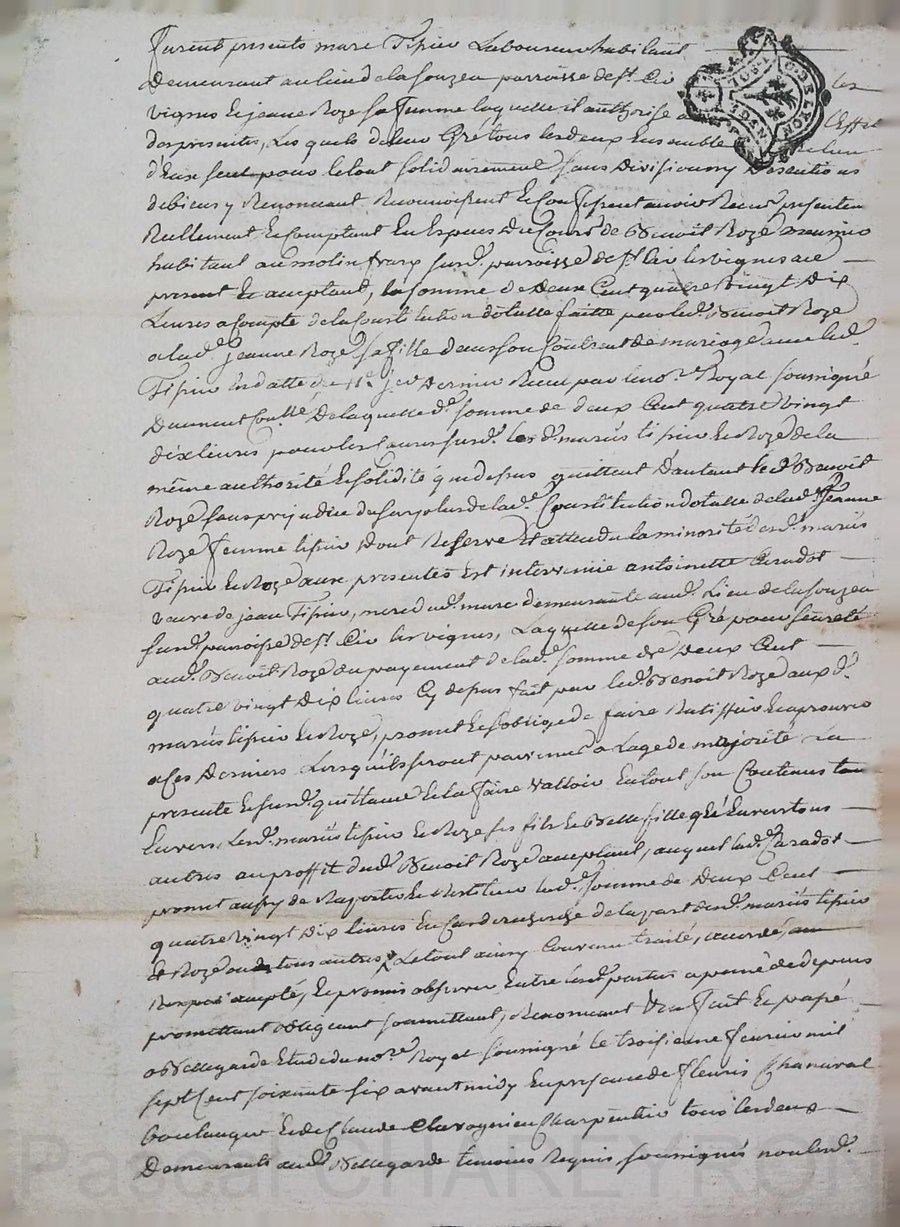 furent presents marc Tissieu Laboureur habitant
demeurant au lieu de la Souzea parroisse de st. Cir les
vignes & jeanne Roze sa femme laquelle il authorise a l'Effet
des presentes, Les quels de leur Gré tous les deux Ensemble
d'Eux seul pour le tout solidairement sans Division ny Discution
de biens y Renoncant Reconnoissent & Confessent avoir Receu presentem
Reellement & Comptant En Especes Du Cours de Benoit Roze meunier
habitant au molin franx surd. parroisse de st. Cir les vignes ace
present & acceptant, la somme de Deux Cent quatre Vingt Dix
Livres a Compte de la Constitution dotalle faitte par led. Benoit Roze
a lad. jeanne Roze sa fille dans son Contract de mariage avec led.
Tissieu En datte du 11e. jer. Dernier Receu par le nore. Royal soussigné
Deument Conllé. De laquelle d. somme de deux Cent quatre Vingt
dix livres pour les Causes susd. les d. mariés tissieu & Roze de la
même authorité & solidité que dessus quittent D'autant le d. Benoit
Roze sans prejudice du surplus de lad. Constitution dotalle de lad. Jeanne
Roze femme tissieu Dont Reserve Et attendu la minorité desd. mariés
Tissieu & Roze aux presentes Est intervenue antoinette Caradot
veuve de jean Tissieu, mere dud. marc demeurante aud. Lieu de la Souzea
susd. parroisse de st. Cir les vignes, Laquelle de son Gré pour seureté
aud. Benoit Roze du payement de lad. somme de Deux Cent
quatre vingt Dix livres Cy dessus fait par led. Benoit Roze aux d.
mariés tissieu & Roze, promet & s'oblige de faire Ratiffier & aprouver
a Ces Derniers Lorsqu'ils seront parvenus a l'age de majorité La
presente & susd. quittance & la faire Valloir En tout son Contenu tan
Envers Lesd. mariés tissieu & Roze ses fils & Belle fille qu'Envers tous
autres au proffit dud. Benoit Roze acceptant, auquel lad. Caradot
promet aussy de Raporter & Restituer lad. somme de Deux Cent
quatre Vingt Dix livres En Cas de recherche de la part desd. mariés tissieu
& Roze ou de tous autres, Le tout ainsy Convenu traité, accordé, au
Respect accepté, & promis observer Entre lesd. parties a peine de depens
promettant obligeant soumettant, Renoncant & Ca fait & passé
a Bellegarde Etude du nore. Royal soussigné le troisieme fevrier mil
sept Cent soixante six avant midy En presence de fleuris Chanaval
boulanger & de Claude Clavagnieu Charpentier tous les deux
Demeurants aud. Bellegarde temoins Requis soussignés non led.
Pascal CHAREYRON